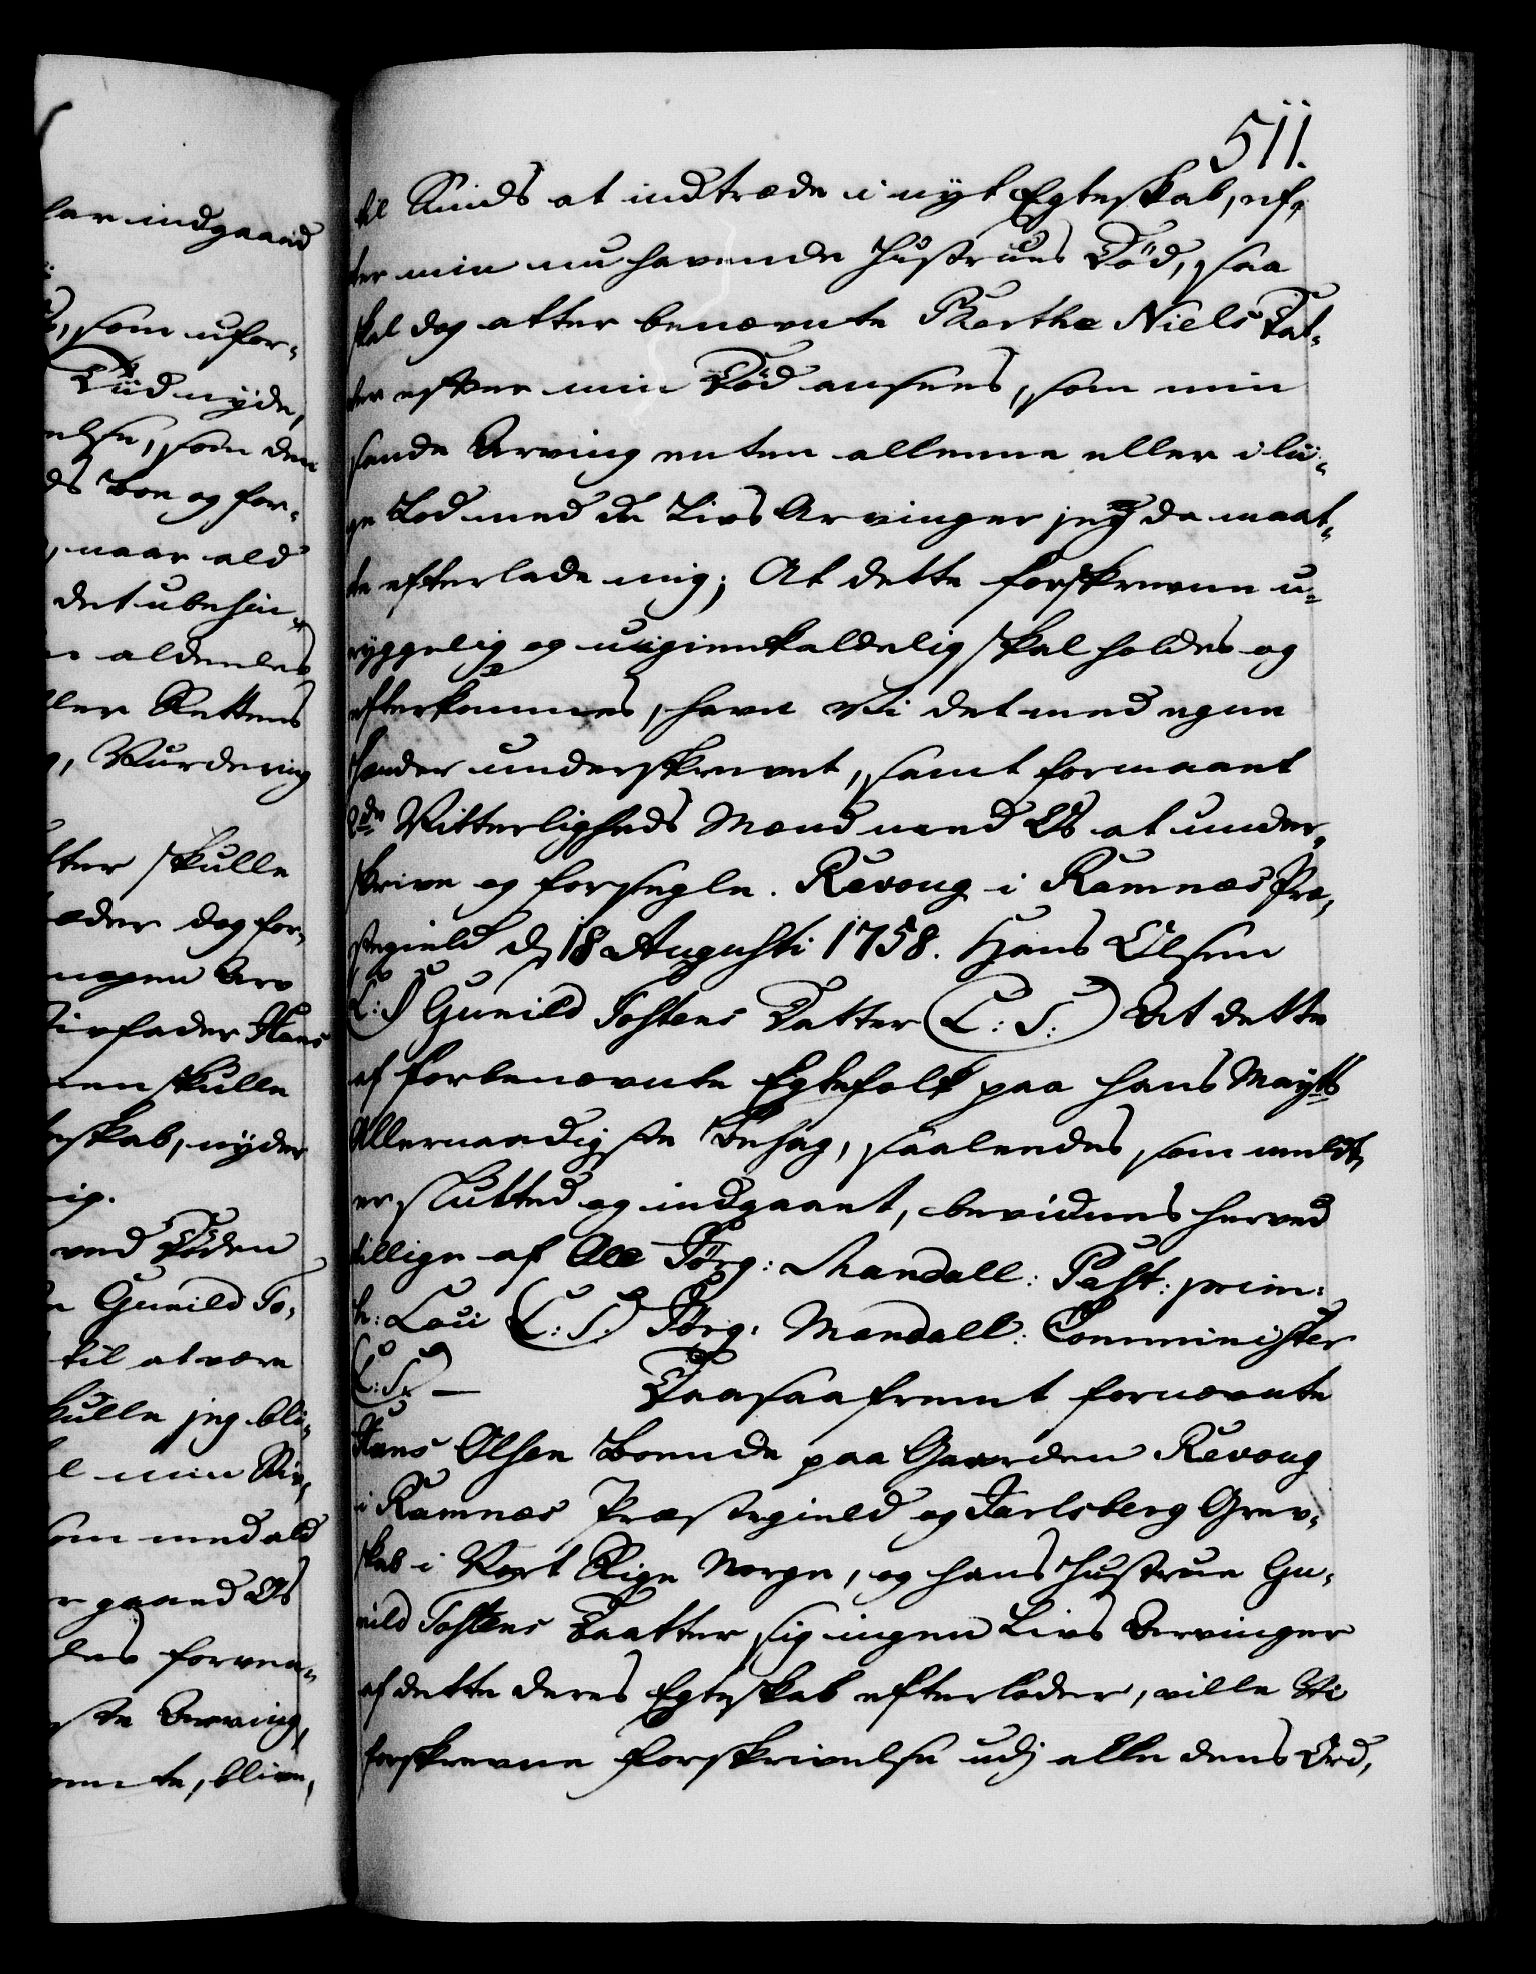 511.
til Sinds at indtræde i nyt Egteskab, ef-
ter min nu havende Hustrues Död, saa
skal dog atter benævnte Berthe Niels Dat-
ter efter min Död ansees, som min
sande Arving enten allene eller i lii-
ge Lod med de Livs Arvinger jeg da maat-
te efterlade mig; At dette forskrevne u-
ryggelig og uigienkaldelig skal holdes og
efterkommes, have Vi det med egne
Hænder underskrevet, samt formaaet
2de Vitterligheds Mænd med Os at under-
skrive og forsegle. Revoug i Ramnæs Præ-
stegield d 18 Augusti 1758. Hans Olsen
(L:S) Gunild Tostens Datter (L:S:) At dette
af forbenævnte Egtefolk paa Hans Mayts
Allernaadigste Behag, saaledes, som meldt,
er slutted og indgaaet, bevidnes herved
tillige af Ole Törg: Mandall: Past: prim:
h: Loci (L:S:) Törg: Mandall: Comminister
(L:S:) — Daasaafremt fornævnte
Hans Olsen Boende paa Gaarden Revoug
i Ramnæs Præstegield og Jarlsberg Grev-
skab i Vort Rige Norge, og hans Hustrue Gu-
nild Tostens Daatter sig ingen Livs Arvinger
af dette deres Egteskab efterlader, ville Vi
forskrevne Forskrivelse udj alle dens Ord,
lar indgaaed
som ufor-
Tiid nyde,
else, som den
ds Boe og for-
naar ald
det ubehin-
aldeeles
ler Rettens
Vurdering
ter skulle
æder dog for-
nogen Arv
Stivfader Hans
men skulle
eskab, nyder
mig.
ved Döden
Gunild To-
til at være
skulle jeg bli-
min Stiv-
som med ald
gaaed Os
des forven-
ste Arving,
mente, blive,